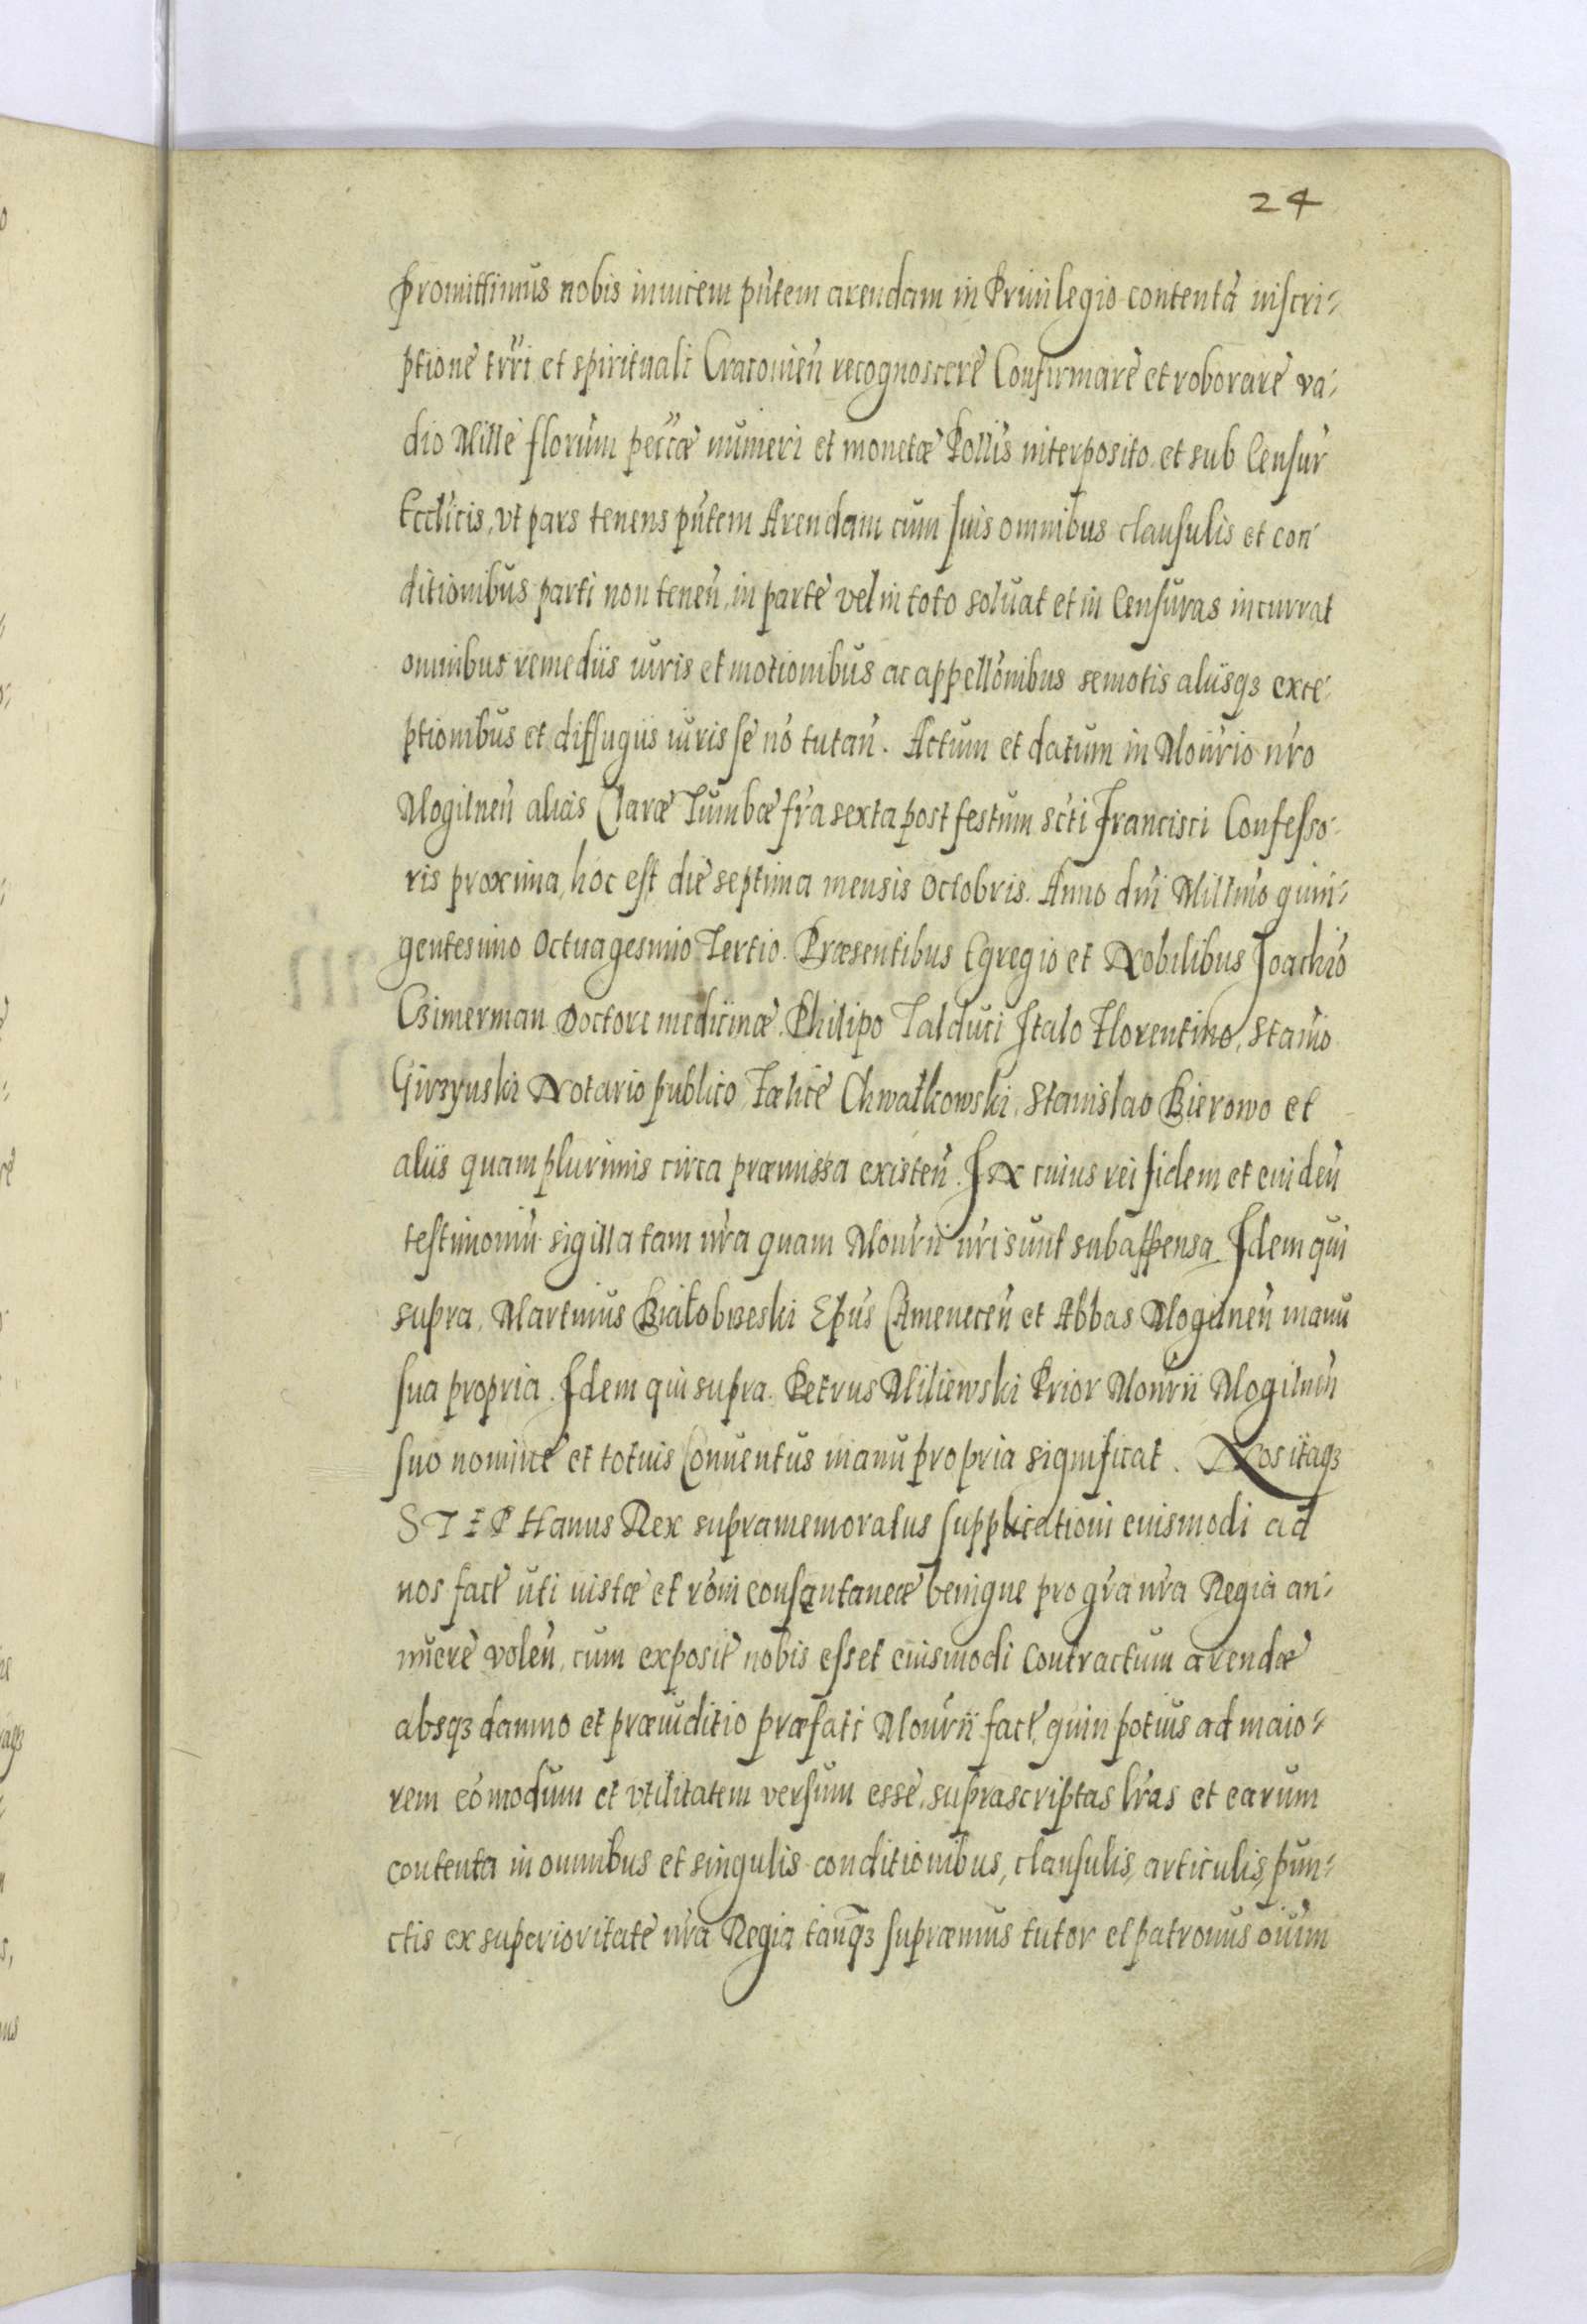 24
promittimus nobis inuicem pn̄tem arendam in Priuilegio contentā inscri⸗
ptione tr̄ri et spirituali Cracouien̄ recognoscere Confirmare et roborare va⸗
dio Mille florum peccæ numeri et monetæ Pollis interposito et sub Censur
Eccl̄icis, vt pars tenens pn̄tem Arendam cum suis omnibus clausulis et con
ditionibus parti non tenen̄, in parte vel in toto soluat et in Censuras incurrat
omnibus remediis iuris et motionibus ac appellōnibus semotis aliisqꝫ exce⸗
ptionibus et diffugiis iuris se nō tutan̄. Actum et datum in Mon̄rio nr̄o
Mogilnen̄ alias Claræ Tumbæ fr̄a sexta post festum sc̄ti Francisci Confesso⸗
ris proxima, hoc est die septima mensis Octobris. Anno dn̄i Millmo quin⸗
gentesimo Octuagesimo Tertio. Præsentibus Egregio et Nobilibus Joachiō
Czimerman Doctore medicinæ. Philipo Talduci Italo Florentino, Stanio
Girzynski Notario publico, Fælice Chwałkowski, Stanislao Bierowo et
aliis quam plurimis circa præmissa existen̄. IN cuius rei fidem et euiden̄
testimoniū sigilla tam nr̄a quam Mon̄rii nr̄i sunt subappensa. Idem qui
supra, Martinus Białobrzeski Ep̄us Camenecen̄ et Abbas Mogilnen̄ manu
sua propria. Idem qui supra. Petrus Miliewski Prior Mon̄rii Mogilnēn
suo nomine et totius Conuentus manu propria significat. Nos itaqꝫ
STEPHanus Rex supramemoratus supplicationi euismodi ad
nos fact̄ uti iustæ et rōni consentaneæ benigne pro gr̄a nr̄a Regia an⸗
nuere volen̄, cum exposit̄ nobis esset euismodi Contractum arendæ
absqꝫ damno et præiuditio præfati Mon̄rii fact̄, quin potius ad maio⸗
rem cōmodum et vtilitatem versum esse, suprascriptas lr̄as et earum
contenta in omnibus et singulis conditionibus, clausulis, articulis, pun⸗
ctis ex superioritate nr̄a Regia, tanqꝫ supræmus tutor et patronus oīum